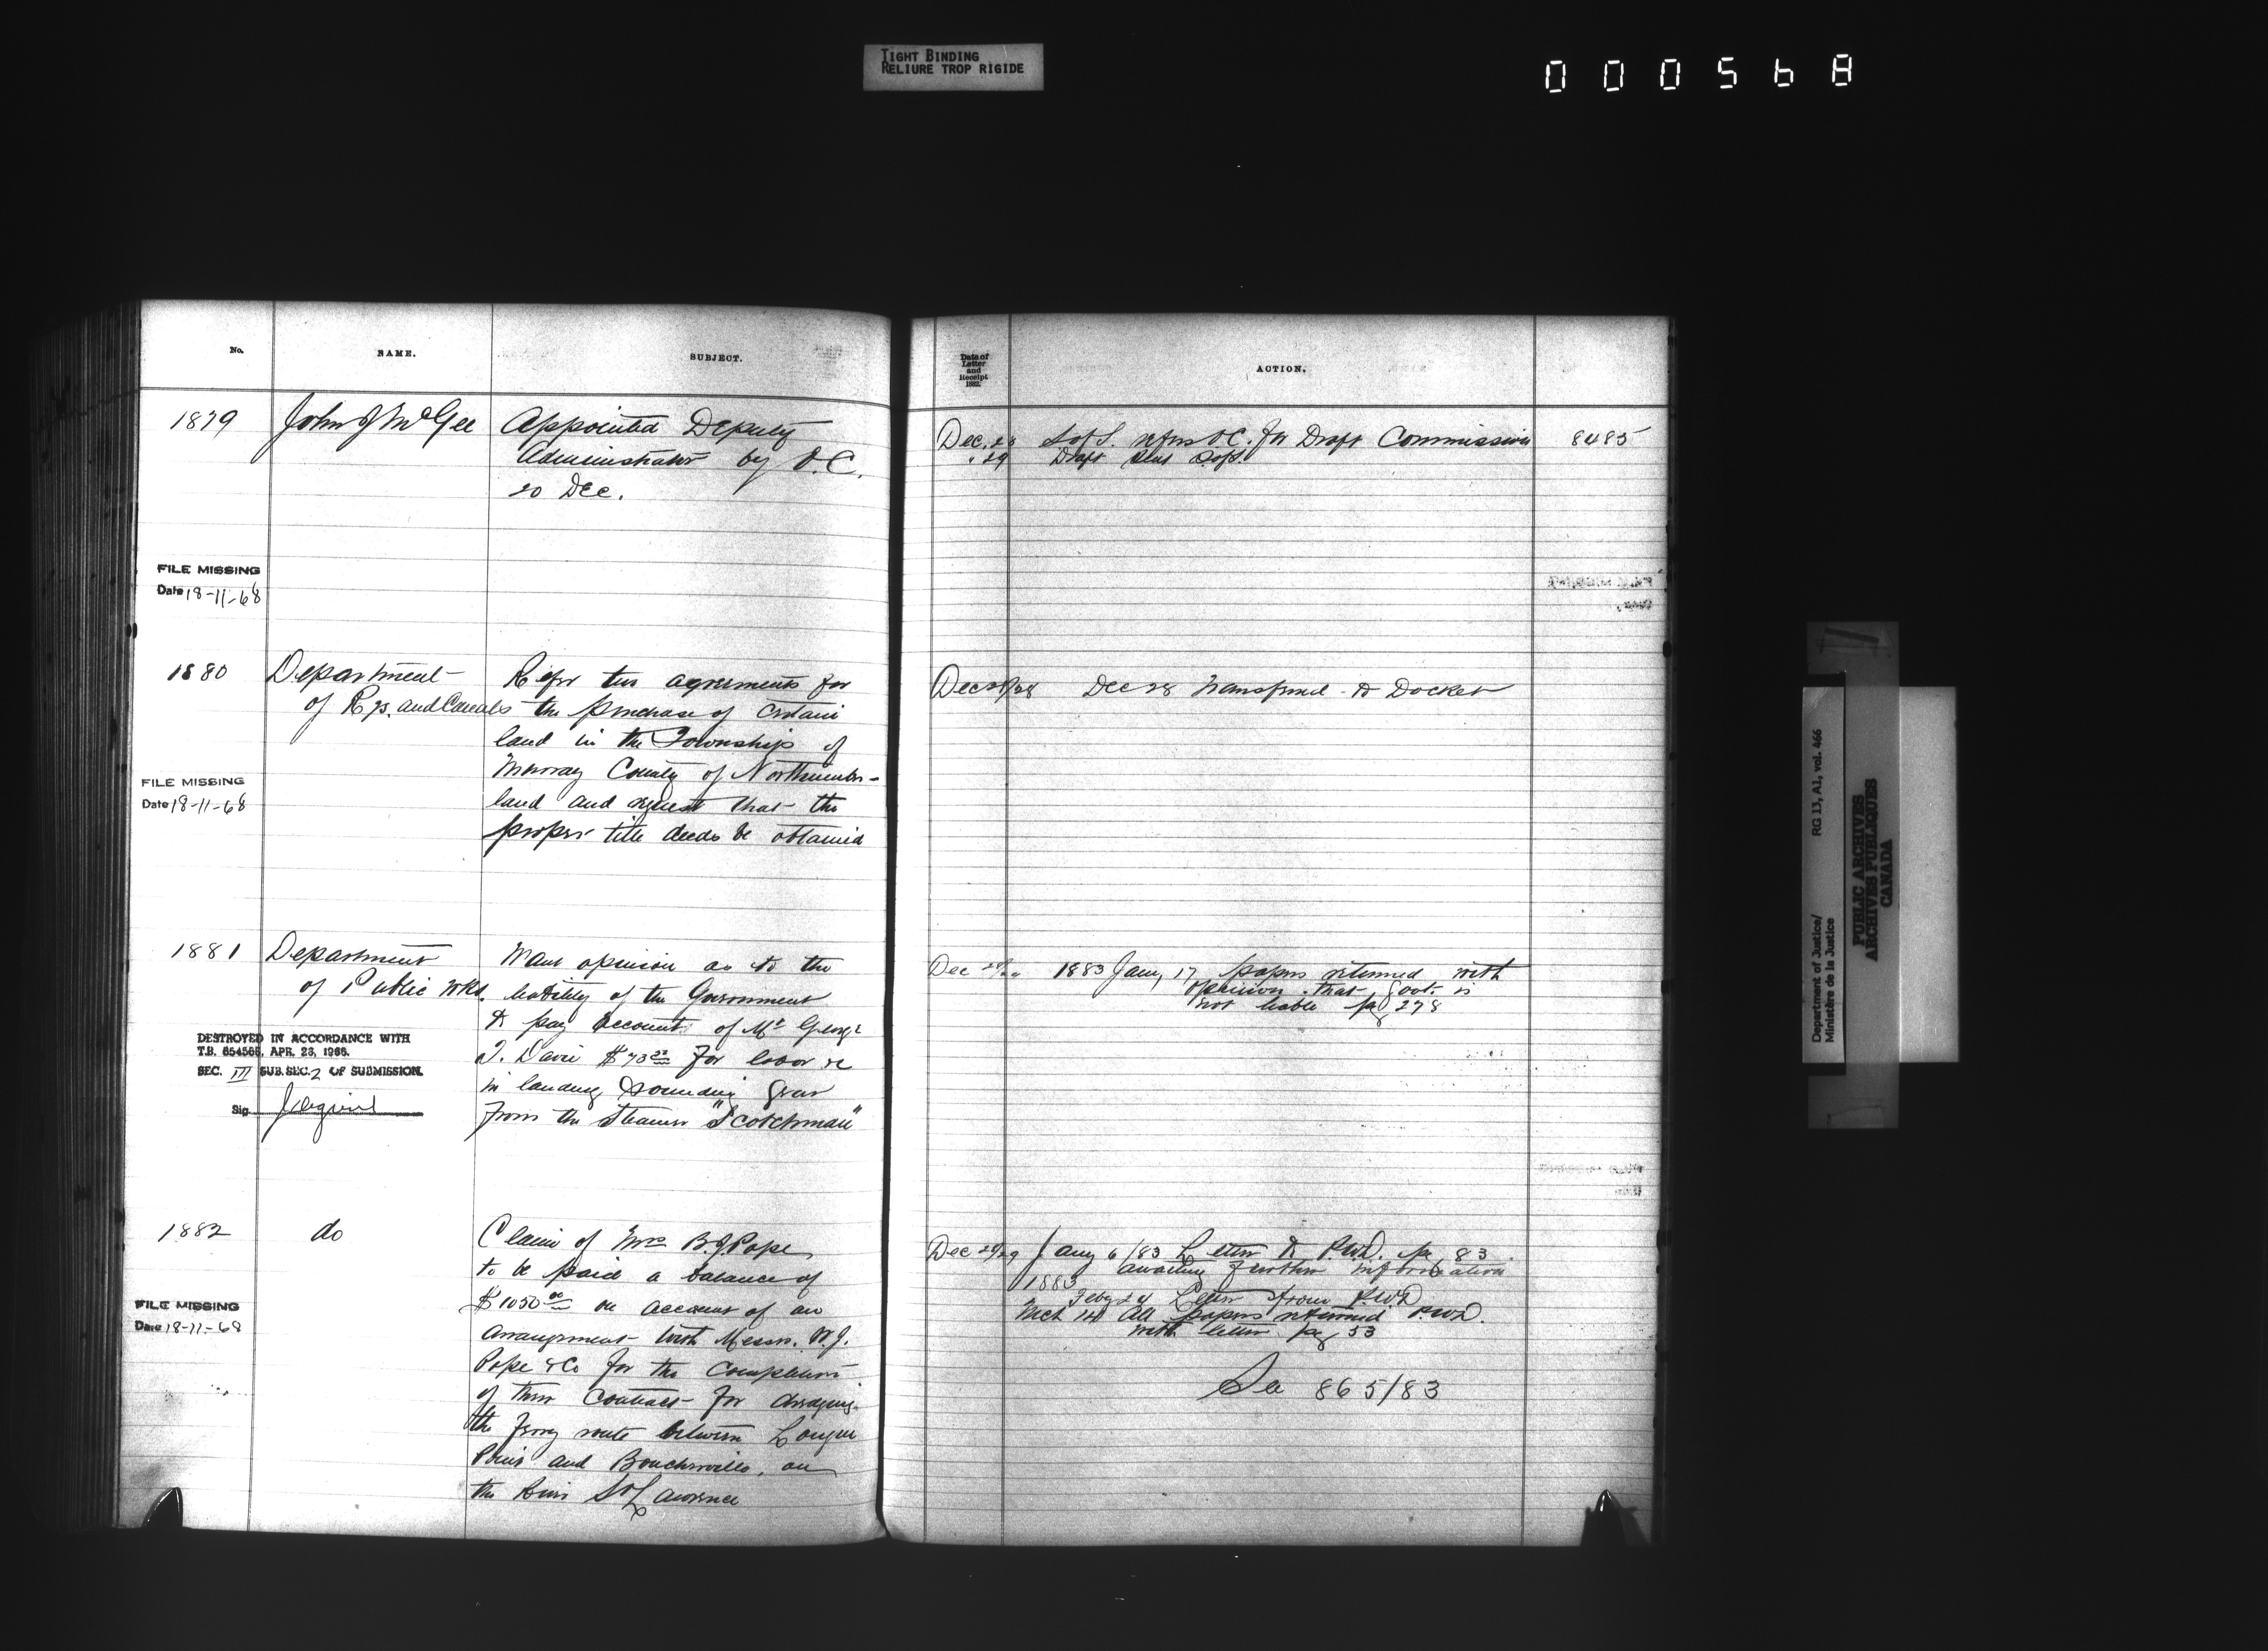 TIGHT BINDING
RELIURE TROP RIGIDE
000568
No.
NAME.
SUBJECT.
Date of
Letter
and
Receipt
1882.
ACTION.
1879
John J McGee
Appointed Deputy
Administrator by O.C.
20 Dec.
Dec. 28 S of S. refers O.C. for Draft Commission 8485
" 29 Draft sent S of S.
FILE MISSING
Date 18-11-68
1880
Department
of Rys. and Canals
Refer two agreements for
the purchase of certain
land in the Township of
Murray County of Northumber-
land and request that the
proper title deeds be obtained
Dec 28/28 Dec 28 Transferred to Docket
FILE MISSING
Date 18-11-68
1881
Department
of Public Wks.
Want opinion as to the
liability of the Government
to pay account of Mr George
T. Davie $73 for labor &c
in landing sounding gear
from the Steamer "Scotchman"
Dec 1883 Jany 17 papers returned with
opinion that Govt. is
not liable pg 278
DESTROYED IN ACCORDANCE WITH
T.B. 654565, APR. 23, 1966.
SEC. III SUB.SEC. 2 OF SUBMISSION.
Sig
1882
do
Claim of Mrs B.J. Pope
to be paid a balance of
$1050 00 on account of an
arrangement with Messrs. W.J.
Pope & Co for the completion
of their contract for dredging
the ferry route between Longue
Pointe and Boucherville, on
the River St Lawrence
Dec 28/29 Jany 6/83 Letter to P.W.D. pg 83
awaiting further information
1883
Feby 24 Letter from P.W.D
Mch 14 All papers returned P.W.D.
with letter pg 53
See 865/83
FILE MISSING
Date 18-11-68
Department of Justice/
Ministère de la Justice
RG 13, A1, vol. 466
PUBLIC ARCHIVES
ARCHIVES PUBLIQUES
CANADA